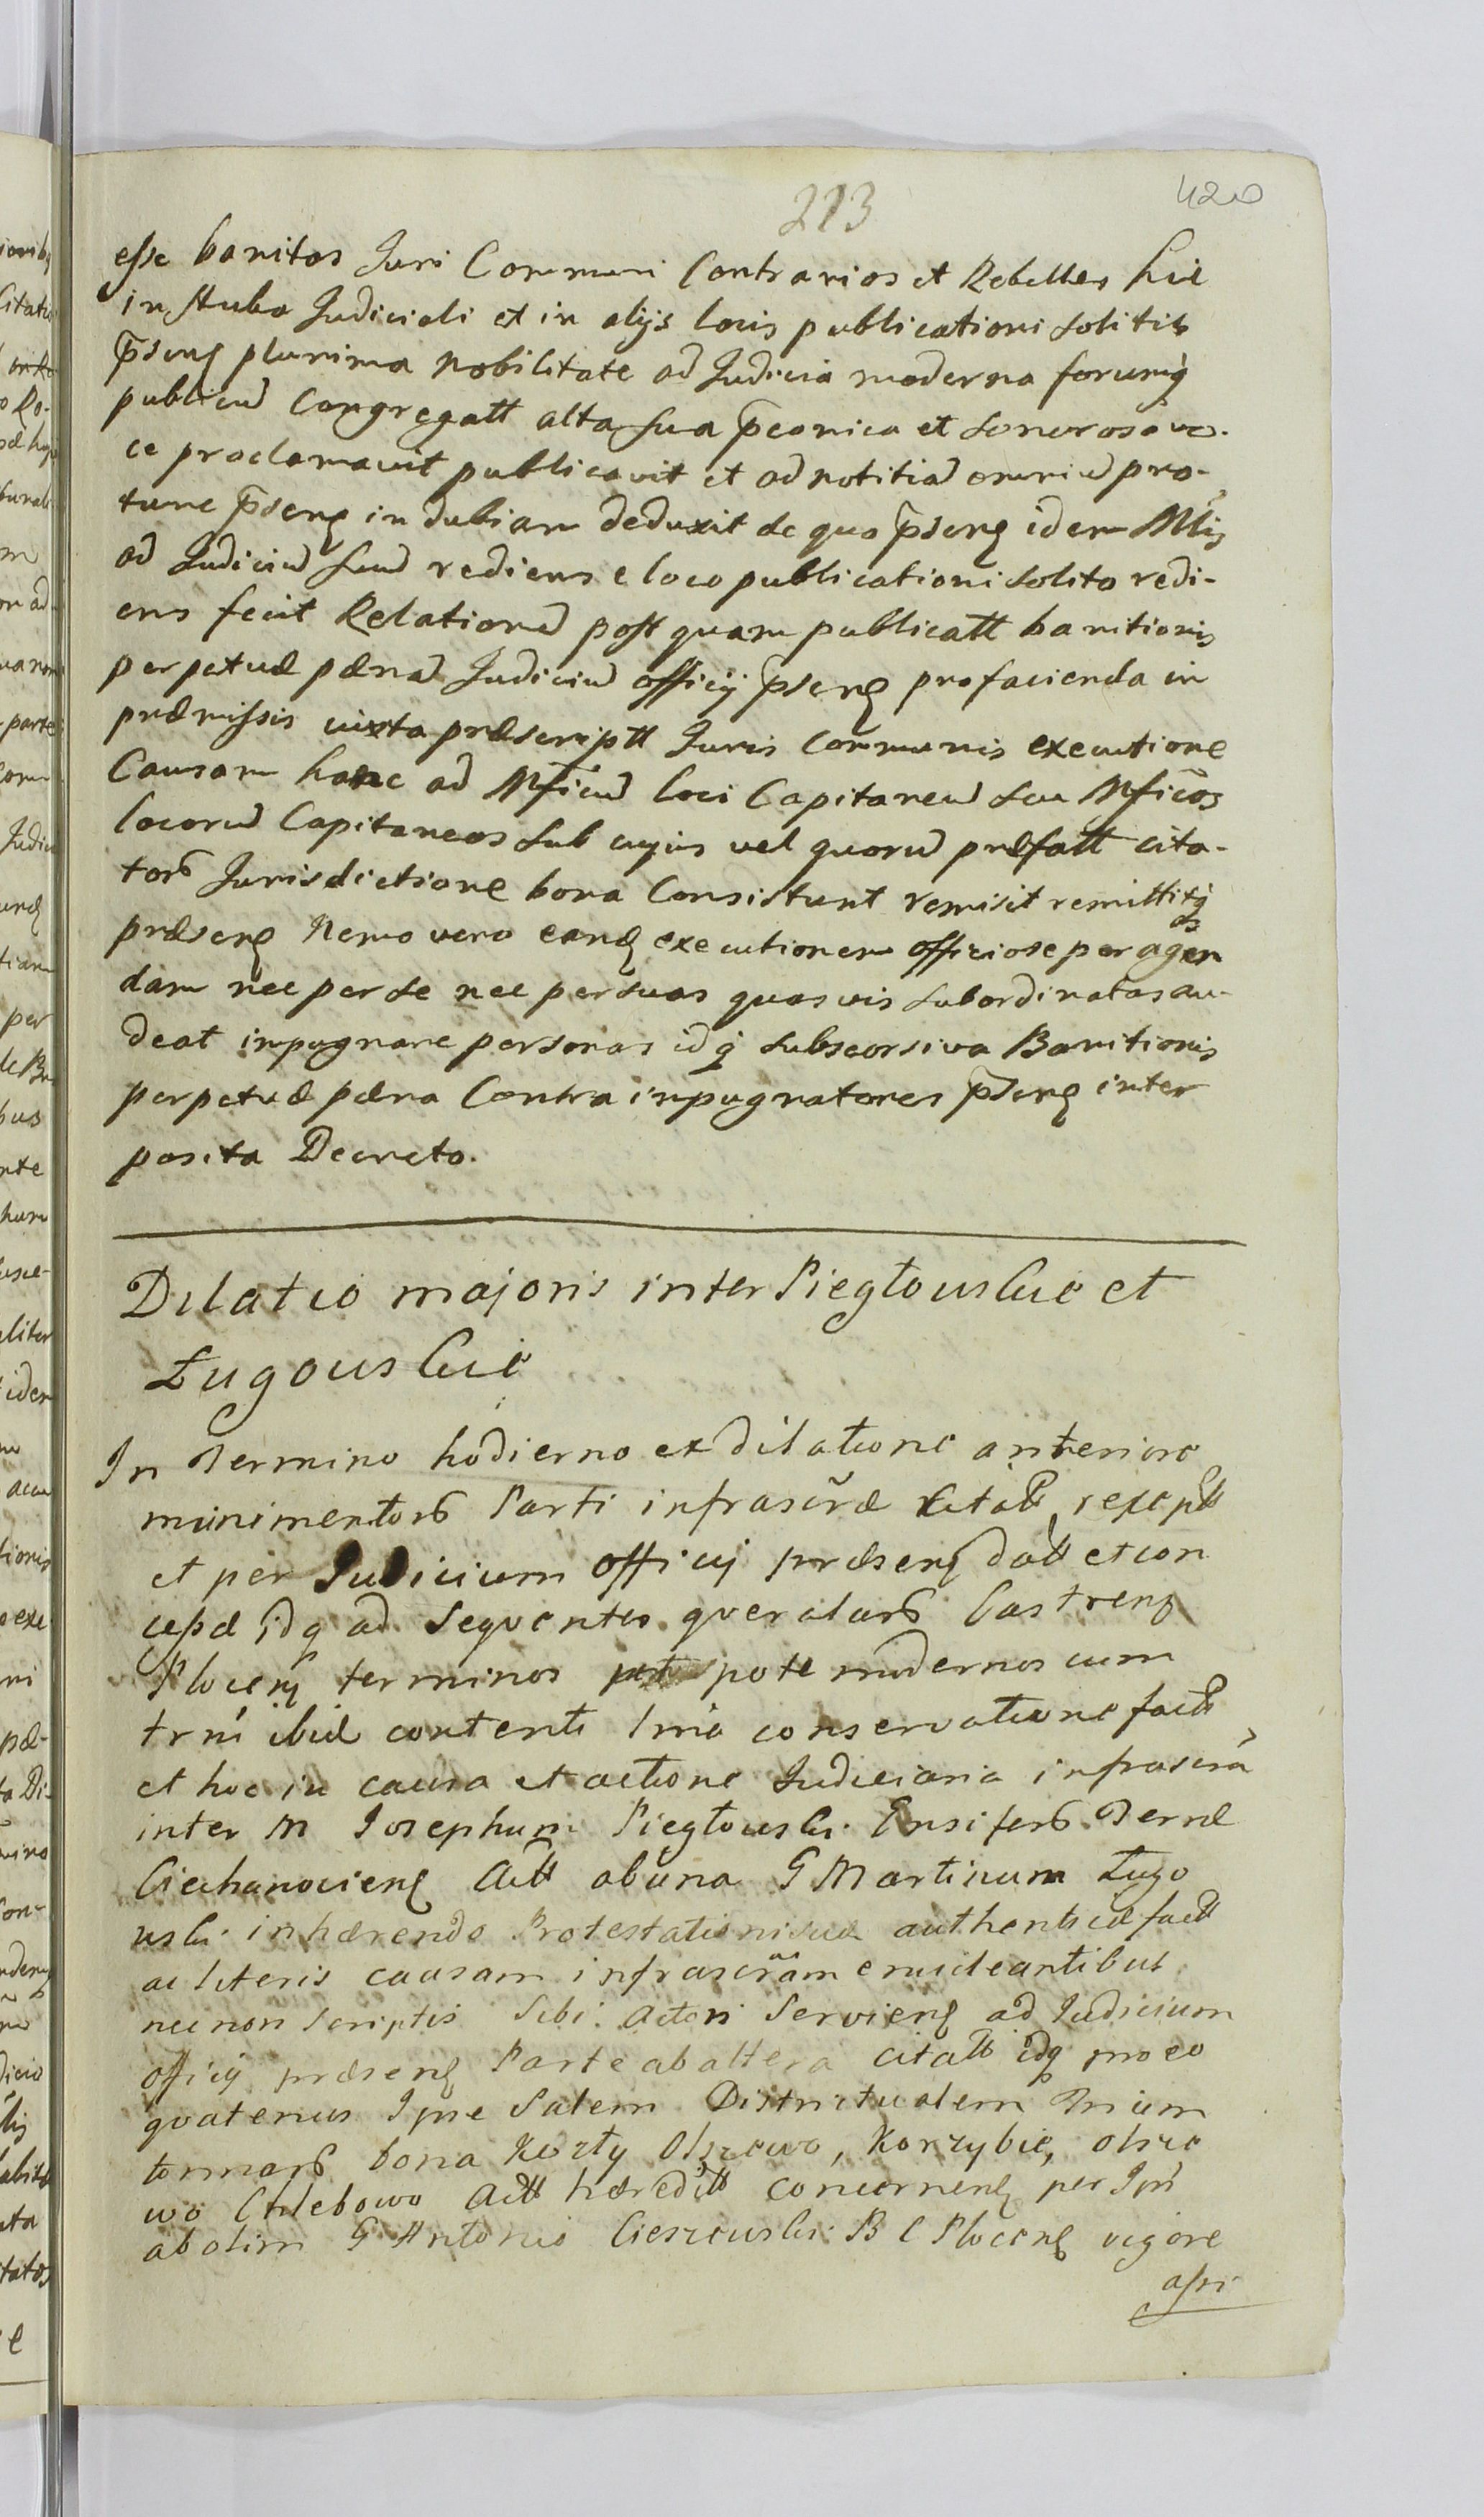 213
420
esse banitos Juri Communi Contrarios et Rebelles hic
in stuba Judiciali et in alijs locis publicationi solitis
p̄senꝭ plurima Nobilitate ad Judicia moderna forumq́
publicu͂ Congregatt alta sua p̄conica et sonorosa vo-
ce proclamavit publicavit et ad notitia͂ omniu͂ pro-
tunc p̄senꝭ in dubiam deduxit de quo p̄senꝭ idem Mlis
ad Judiciu͂ suu͂ rediens e loco publicationi solito redi-
ens fecit Relatione͂ post quam publicatt banitionis
perpetuæ pæna͂ Judiciu͂ officij p̄senꝭ pro facienda in
præmissis iuxta præscriptt Juris Communis executione
Causam hanc ad Mficu͂ loci Capitaneu͂ seu Mficos
locoru͂ Capitaneos sub cujus vel quoru͂ præfatt cita-
torꝭ Jurisdictione bona Consistunt remisit remittitq́
præsenꝭ Nemo vero eandꝭ executionem officiose peragen
dam nec per se nec per suas quasvis subordinatas au-
deat inpugnare personas idq́ sub seorsiva Banitionis
perpetuæ pæna Contra inpugnatores p̄senꝭ inter
posita Decreto.
Dilatio majoris inter Piegłowskie et
Ługowskie
In Termino hodierno ex dilatione anteriore
munimentorꝭ Parti infrascr̃æ citatꝭ receptt
et per Judicium officij præsenꝭ datt et con
cessæ idq ad sequentes querelarꝭ Castrenꝭ
Plocenꝭ terminos pote modernos cum
trni ibid contenti lma conservatione factꝭ
et hoc in causa et actione Judiciaria infrascr̃a
inter M Josephum Piegłowski Ensiferꝭ Terræ
Ciechanoviensꝭ Actt ab una G Martinum Ługo
wski inhærendo Protestationi suæ authenticæ factt
ac literis causam infrascr̃am enucleantibus
necnon scriptis sibi Actori servienꝭ ad Judicium
officij præsenꝭ Parte ab altera citatt idq pro eo
quatenus Ipse Salem Districtualem
bona Kozły Olszewo, Korzybie, Olsze
wo Chlebowo Actt hæreditt concernenꝭ per Ipm
ab olim G Antonio Cieszewski B C Plocenꝭ vigore
assi